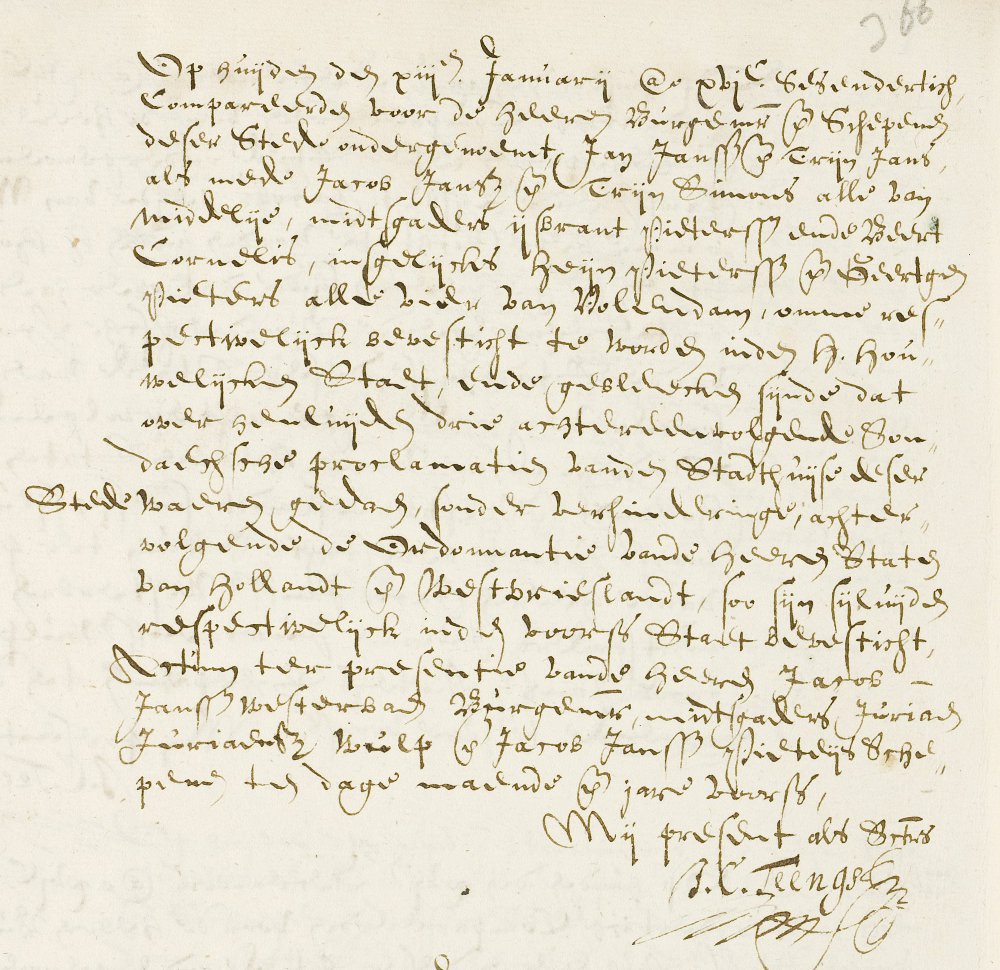 366
Op huijden den xiijen. Januarij @o xvjc. Sesendertich,
Compareerden voor de Heeren Burgemrs en Schepenen
deser Stede ondergenoemt, Jan Janssz en Trijn Jans,
als mede Jacob Jansz en Trijn Simons alle van
Middelije, midtsgaders ijsbrant Pieterssz ende Beert
Cornelis, insgelijcks Heijn Pieterssz en Geertgen
Pieters alle vier van Volendam, omme res-
pectivelijck bevesticht te worden inden H. Hou-
welijcken Staet, ende gebleecken sijnde dat
over henluijden drie achtereenvolgende Son-
daechsche proclamatien vanden Stadthuijse deser
Stede waeren gedaen, sonder verhinderinge, achter-
volgende de Ordonnantie vande Heeren Staten
van Hollandt en Westvrieslandt, soo sijn sijluijden
respectivelijck inden voorss Staet bevesticht,
Actum ter presentie vande Heeren Jacob
Janssz Westerbaen Burgemr, midtsgaders Juriaen
Juriaensz Wulp en Jacob Janssz Pieteijs Sche-
penen ten dage maende en jare voorss,
Mij present als Sctrs
J. C. Teengs